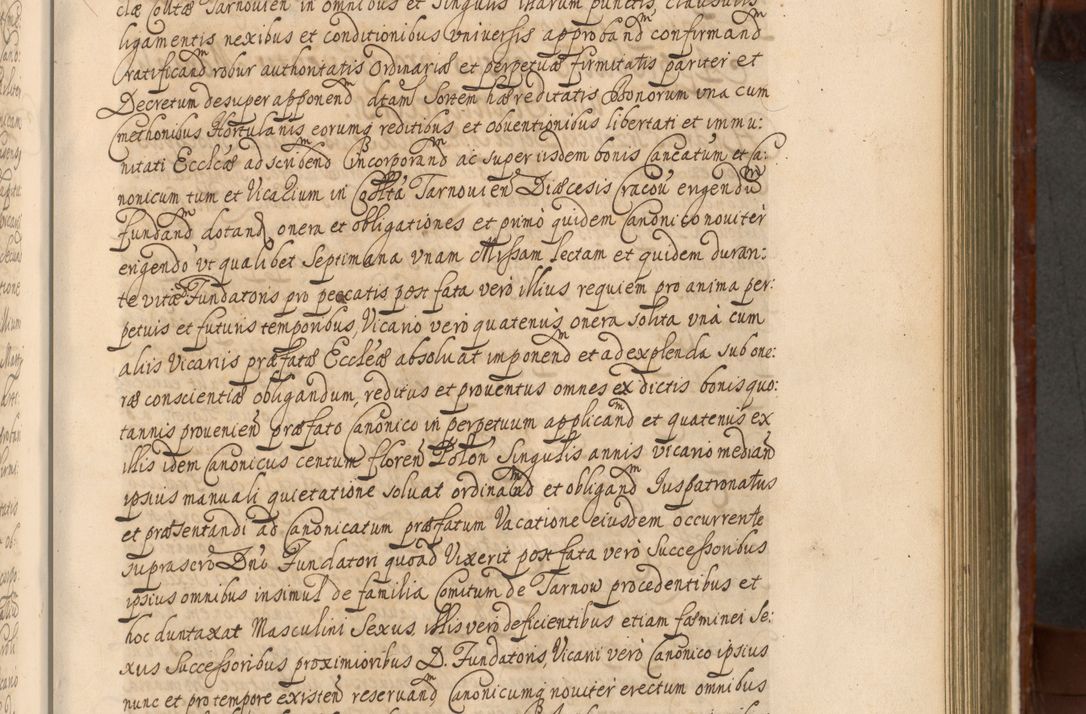 clæ Colltæ Tarnovien in omnibus et singulis illarum punctis, clausulis
ligamentis nexibus et conditionibus universis approband confirmand
ratificand robur authoritatis Ordinariæ et perpetuæ firmitatis pariter et
Decretum desuper apponend dtam Sortem hæreditatis Bonorum una cum
methonibus Hortulanis eorumq reditibus et obventionibus libertati et immu:
nitati Eccleæ adscribend Incorporand ac super iisdem bonis Cancatum et Ca:
nonicum tum et Vicarium in Collta Tarnovien Diæcesis Cracov erigendu
fundand dotand onera et obligationes et primo quidem Canonico noviter
erigendo ut qualibet Septimana unam Missam lectam et quidem duran:
te vitæ Fundatoris pro peccatis post fata vero illius requiem pro anima per:
petuis et futuris temporibus, Vicario vero quatenus onera solita una cum
aliis Vicariis præfatæ Eccleæ absoluat imponend et ad explenda sub one:
ræ conscientiæ obligandum, reditus et proventus omnes ex dictis bonis quo:
tannis provenien præfato Canonico in perpetuum applicand et quatenus ex
illis idem Canonicus centum floren Polon Singulis annis vicario median
ipsius manuali quietatione soluat ordinand et obligand Juspatronatus
et præsentandi ad Canonicatum præfatum Vacatione eiusdem occurrente
suprascro Dno Fundatori quoad Vixerit post fata vero Successoribus
ipsius omnibus insimul de familia Comitum de Tarnow procedentibus et
hoc duntaxat Masculini Sexus, illis vero deficientibus etiam fæminei Se:
xus Successoribus proximioribus D. Fundatoris, Vicarii vero Canonico ipsius
nunc et pro tempore existen reservand Canonicumq noviter erectum omnibus